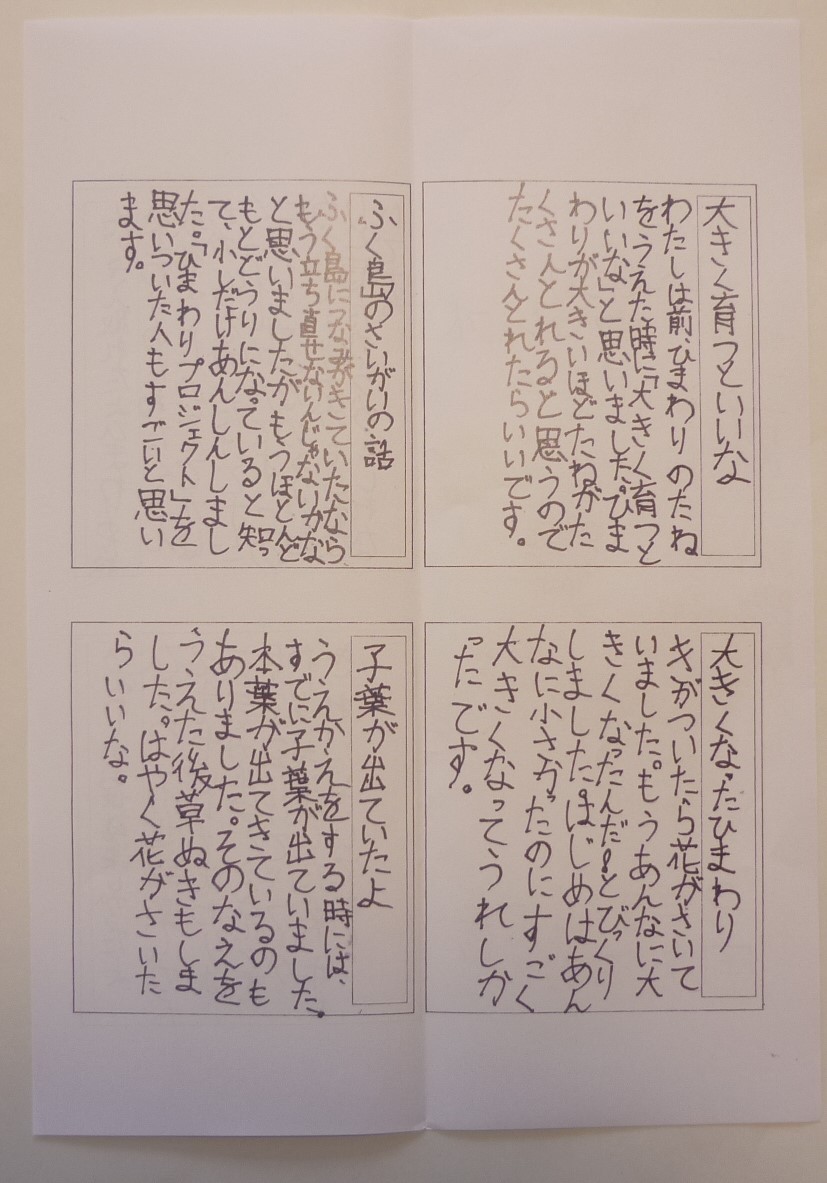 大きく育つといいな
わたしは前、ひまわりのたね
をうえた時に「大きく育つと
いいな」と思いました。ひま
わりが大きいほどたねがた
くさんとれると思うので
たくさんとれたらいいです。
ふく島のさいがいの話
ふく島につなみがきていたなら
もう立ち直せないんじゃないかな
と思いましたがもうほとんど
もとどうりになっていると知っ
て、小しだけあんしんしまし
た。「ひまわりプロジェクト」を
思いついた人もすごいと思い
ます。
大きくなったひまわり
きがついたら花がさいて
いました。もうあんなに大
きくなったんだ!とびっくり
しました。はじめはあん
なに小さかったのにすごく
大きくなってうれしか
ったです。
子葉が出ていたよ
うえかえをする時には、
すでに子葉が出ていました。
本葉が出てきているのも
ありました。そのなえを
うえた後草ぬきもしま
した。はやく花がさいた
らいいな。